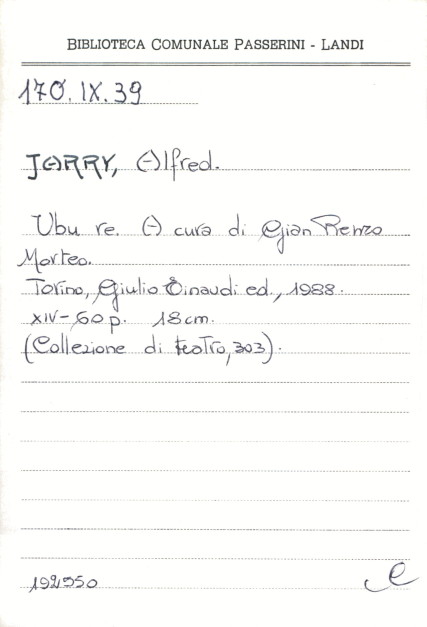 BIBLIOTECA COMUNALE PASSERINI - LANDI
170.IX.39
JARRY, Alfred.
Ubu re. A cura di Gian Renzo
Morteo.
Torino, Giulio Einaudi ed., 1988.
XIV-60 p. 18 cm.
(Collezione di teatro, 303).
192950
e